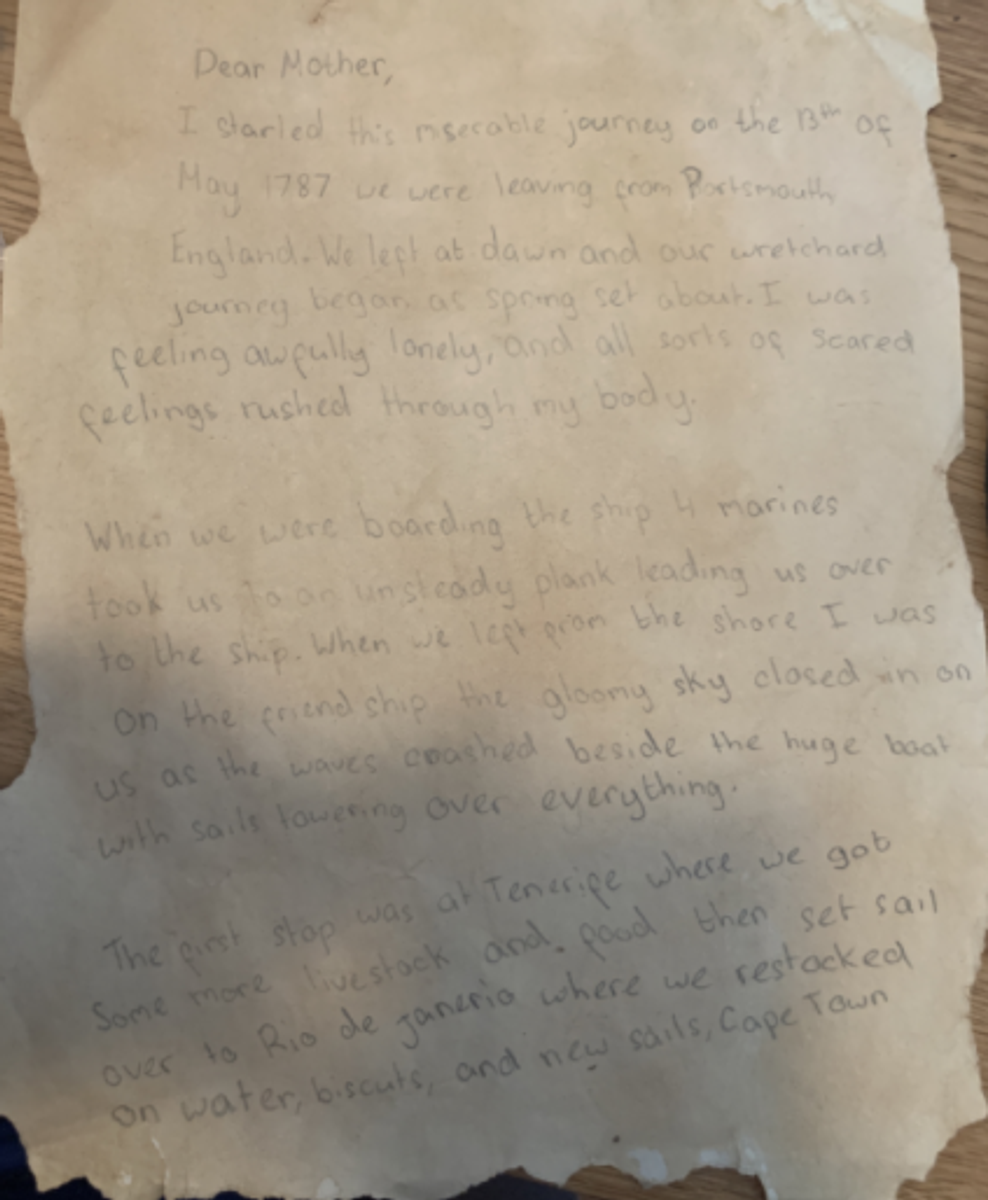 Dear Mother,
I started this miserable journey on the 13th of
May 1787 we were leaving from Portsmouth
England. We left at dawn and our wretchard
journey began as spring set about. I was
feeling awfully lonely, and all sorts of scared
feelings rushed through my body.
When we were boarding the ship 4 marines
took us to an unsteady plank leading us over
to the ship. When we left from the shore I was
on the friendship the gloomy sky closed in on
us as the waves coashed beside the huge boat
with sails towering over everything.
The first stop was at Tenerife where we got
Some more livestock and. food then set sail
over to Rio de janerio where we restocked
on water, biscuts, and new sails, Cape Town